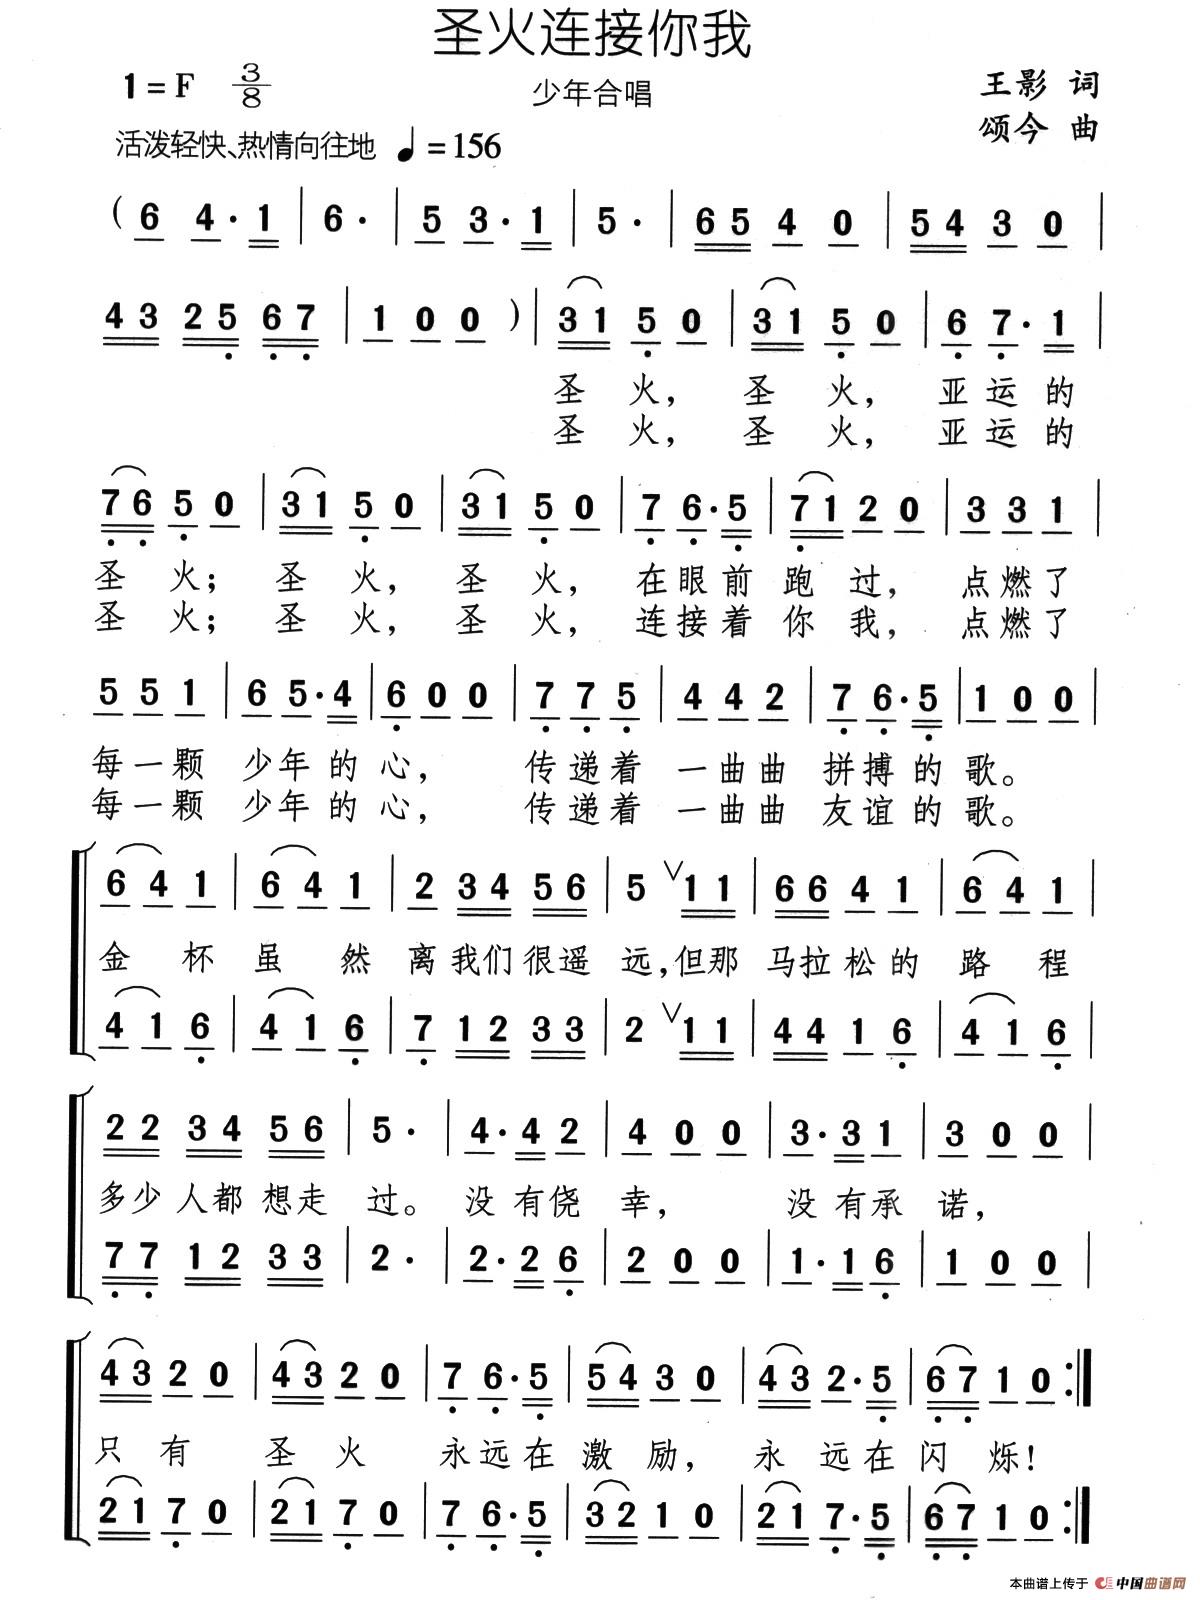 圣火连接你我
1=F 3/8 少年合唱 王影 词
颂今 曲
活泼轻快、热情向往地 ♩=156
( 6 4·1 | 6· | 5 3·1 | 5· | 65 4 0 | 54 3 0 |
43 25 67 | 1 0 0 ) | 31 5 0 | 31 5 0 | 6 7·1 |
圣 火, 圣 火, 亚运的
圣 火, 圣 火, 亚运的
76 5 0 | 31 5 0 | 31 5 0 | 7 6·5 | 71 2 0 | 3 3 1 |
圣 火; 圣 火, 圣 火, 在眼前 跑 过, 点燃了
圣 火; 圣 火, 圣 火, 连接着 你 我, 点燃了
5 5 1 | 6 5·4 | 6 0 0 | 7 7 5 | 4 4 2 | 7 6·5 | 1 0 0 |
每一颗 少年的 心, 传递着 一曲曲 拼搏的 歌。
每一颗 少年的 心, 传递着 一曲曲 友谊的 歌。
6 4 1 | 6 4 1 | 2 34 56 | 5 ∨ 11 | 66 4 1 | 6 4 1 |
金 杯 虽 然 离我们很遥 远,但那 马拉松的 路 程
4 1 6 | 4 1 6 | 7 12 33 | 2 ∨ 11 | 44 1 6 | 4 1 6 |
22 34 56 | 5· | 4·4 2 | 4 0 0 | 3·3 1 | 3 0 0 |
多少人都想走 过。 没有侥 幸, 没有承 诺,
77 12 33 | 2· | 2·2 6 | 2 0 0 | 1·1 6 | 1 0 0 |
43 2 0 | 43 2 0 | 7 6·5 | 54 3 0 | 43 2·5 | 67 1 0 :|
只 有 圣 火 永远在 激 励, 永 远在 闪 烁!
21 7 0 | 21 7 0 | 7 6·5 | 32 1 0 | 21 7·5 | 67 1 0 :|
本曲谱上传于 中国曲谱网